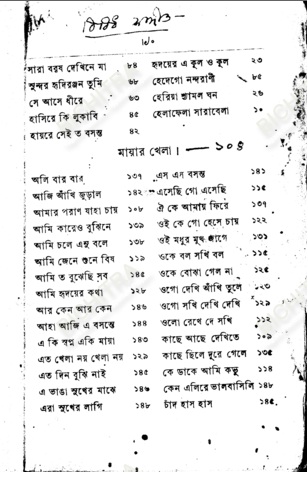 বিবিধ সঙ্গীত
৸০
সারা বরষ দেখিনে মা ৮৪ হৃদয়ের এ কূল ও কূল ২৩
সুন্দর হৃদিরঞ্জন তুমি ৬৮ হেদেগো নন্দরাণী ৮৫
সে আসে ধীরে ৬৩ হেরিয়া শ্যামল ঘন ২৬
হাসিরে কি লুকাবি ৪৫ হেলাফেলা সারাবেলা ১০
হায়রে সেই ত বসন্ত ৪২
মায়ার খেলা। — ১০৪
অলি বার বার ১৩৭ এস এস বসন্ত ১৪১
আজি আঁখি জুড়াল ১৪২ এসেছি গো এসেছি ১১৫
আমার পরাণ যাহা চায় ১০৮ ঐ কে আমায় ফিরে ১৩৭
আমি কারেও বুঝিনে ১৩৯ ওই কে গো হেসে চায় ১২২
আমি চলে এনু বলে ১৩৮ ওই মধুর মুখ জাগে ১৩১
আমি জেনে শুনে বিষ ১১৯ ওকে বল সখি বল ১১৫
আমি ত বুঝেছি সব ১৪৫ ওকে বোঝা গেল না ১২৫
আমি হৃদয়ের কথা ১২৮ ওগো দেখি আঁখি তুলে ১২৩
আর কেন আর কেন ১৪৬ ওগো সখি দেখি দেখি ১২৯
আহা আজি এ বসন্তে ১৪৪ ওলো রেখে দে সখি ১১২
এ কি স্বপ্ন একি মায়া ১৪৩ কাছে আছে দেখিতে ১০৯
এত খেলা নয় খেলা নয় ১২৯ কাছে ছিলে দূরে গেলে ১৩৫
এত দিন বুঝি নাই ১৪৫ কে ডাকে আমি কভু ১১৪
এ ভাঙা সুখের মাঝে ১৪৬ কেন এলিরে ভালবাসিলি ১৪৮
এরা সুখের লাগি ১৪৮ চাঁদ হাস হাস ১৪৫